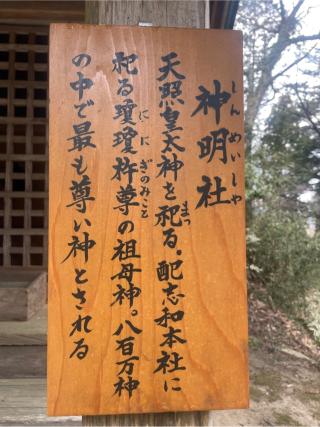 神明社
しんめいしや
天照皇大神を祀る。配志和本社に
まつ
祀る瓊瓊杵尊の祖母神。八百万神
ににぎのみこと
の中で最も尊い神とされる